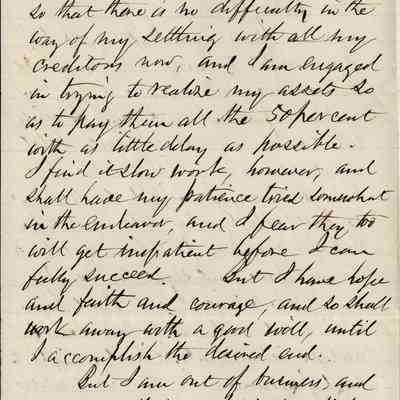 so that there is no difficulty in the
way of my settling with all my
creditors now, and I am engaged
in trying to realize my assets so
as to pay them all the 50 per cent
with as little delay as possible.
I find it slow work, however, and
shall have my patience tried somewhat
in the endeavor, and I fear they too
will get impatient before I can
fully succeed. But I have hope
and faith and courage, and so shall
work away with a good will, until
I accomplish the desired end.
But I am out of business, and